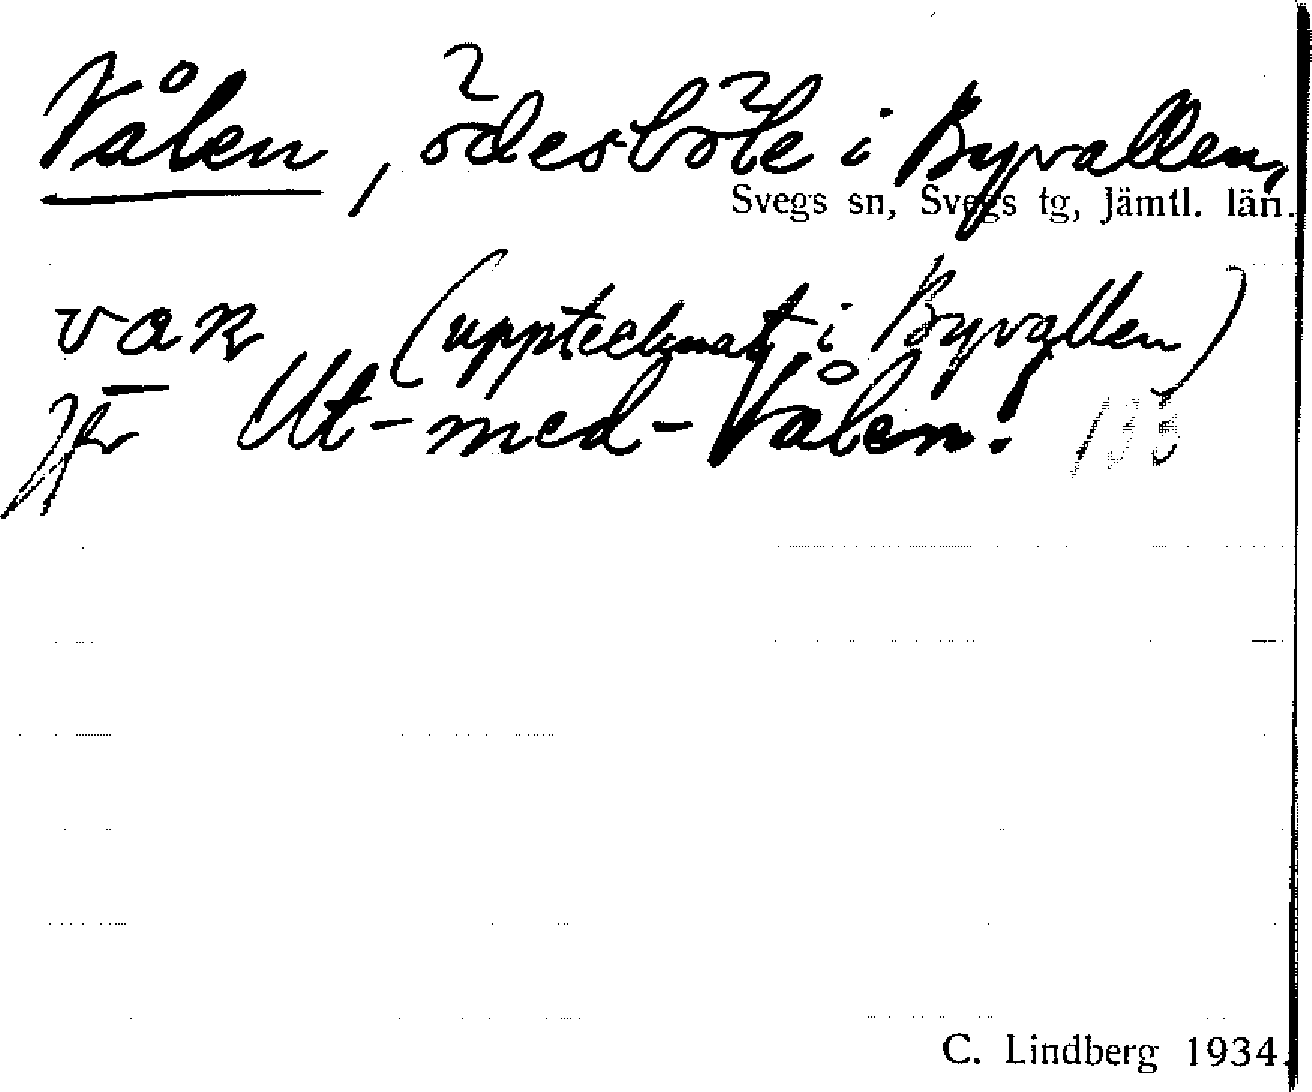 Vålen, ödesböle i Byvallen,
Svegs sn, Svegs tg, Jämtl. län.
(upptecknat i Byvallen)
Jfr Ut-med-Vålen.
C. Lindberg 1934.